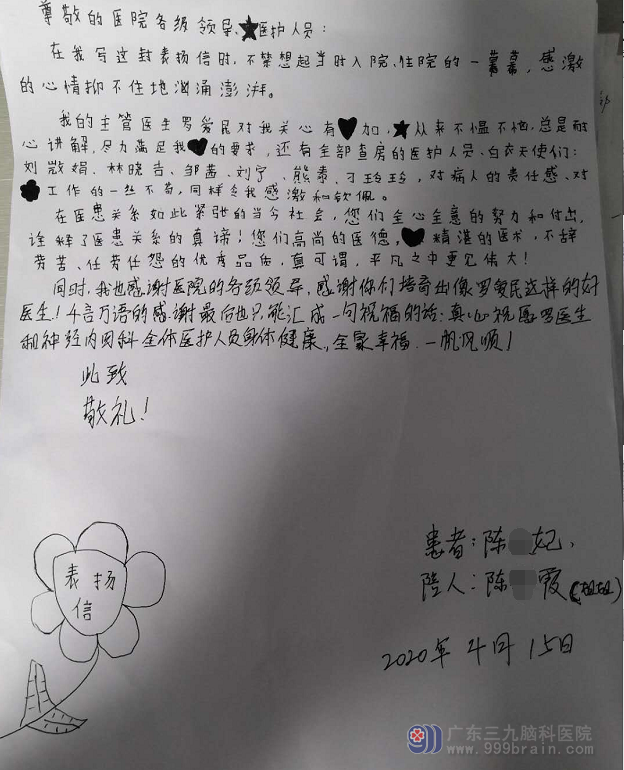 尊敬的医院各级领导、医护人员：
在我写这封表扬信时，不禁想起当时入院、住院的一幕幕，感激
的心情抑不住地汹涌澎湃。
我的主管医生罗爱民对我关心有加，从来不愠不恼，总是耐
心讲解，尽力满足我的要求，还有全部查房的医护人员、白衣天使们：
刘 娟、林晓吉、邹茜、刘宁、熊素、刁玲玲，对病人的责任感、对
工作的一丝不苟，同样令我感激和钦佩。
在医患关系如此紧张的当今社会，您们全心全意的努力和付出，
诠释了医患关系的真谛！您们高尚的医德，精湛的医术，不辞
劳苦、任劳任怨的优秀品质，真可谓，平凡之中更见伟大！
同时，我也感谢医院的各级领导，感谢你们培育出像罗爱民这样的好
医生！千言万语的感谢最后也只能汇成一句祝福的话：真心祝愿罗医生
和神经内四科全体医护人员身体健康，全家幸福，一帆风顺！
此致
敬礼！
表扬
信
患者：陈 妃、
陪人：陈 霞（姐姐）
2020年4月15日
广东三九脑科医院
www.999brain.com